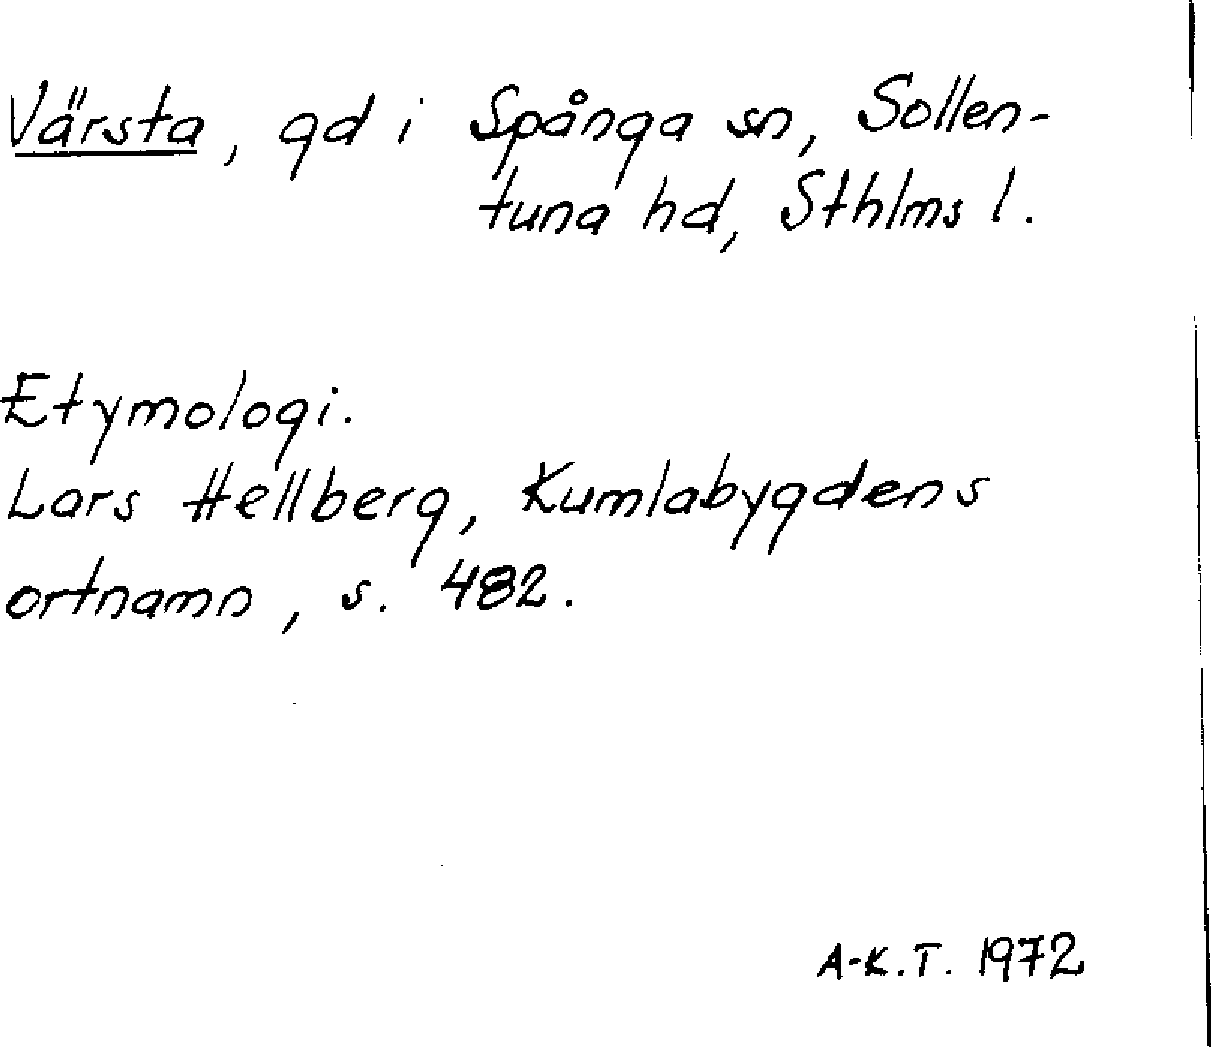 Värsta, gd i Spånga sn, Sollen-
tuna hd, Sthlms l.
Etymologi.
Lars Hellberg, Kumlabygdens
ortnamn, s. 482.
A-K.T. 1972